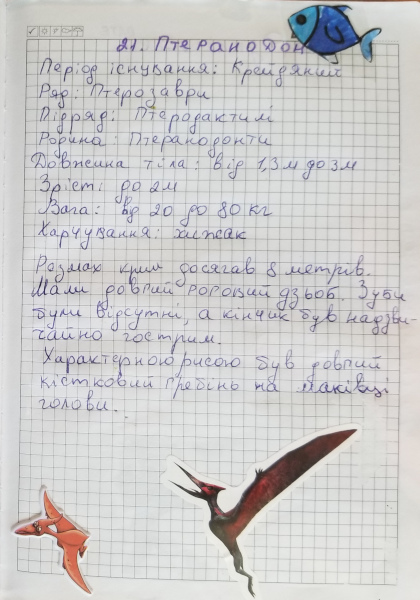 21. Птеранодон
Період існування: Крейдяний
Ряд: Птерозаври
Підряд: Птеродактилі
Родина: Птеранодонти
Довжина тіла: від 1,3м до 3м
Зріст: до 2м
Вага: від 20 до 80 кг
Харчування: хижак
Розмах крил досягав 8 метрів.
Мали довгий, дзьоб. Зуби
були відсутні, а кінчик був надзви-
чайно гострим.
Характерною рисою був довгий
кістковий гребінь на маківці
голови.